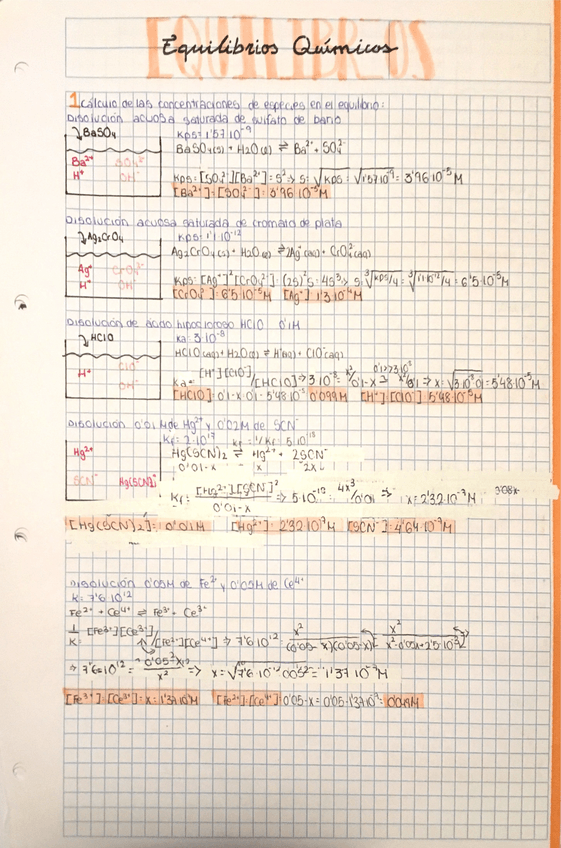 EQUILIBRIOS
Equilibrios Químicos
1 Cálculo de las concentraciones de especies en el equilibrio:
Disolución acuosa saturada de sulfato de bario
BaSO₄
Kps = 1'57·10⁻⁹
BaSO₄(s) + H₂O(l) ⇌ Ba²⁺ + SO₄²⁻
Ba²⁺ SO₄²⁻
H⁺ OH⁻
Kps = [SO₄²⁻][Ba²⁺] = S² → S = √Kps = √1'57·10⁻⁹ = 3'96·10⁻⁵ M
[Ba²⁺] = [SO₄²⁻] = 3'96·10⁻⁵ M
Disolución acuosa saturada de cromato de plata
Ag₂CrO₄
Kps = 1'1·10⁻¹²
Ag₂CrO₄(s) + H₂O(l) ⇌ 2Ag⁺(aq) + CrO₄²⁻(aq)
Ag⁺ CrO₄²⁻
H⁺ OH⁻
Kps = [Ag⁺]²[CrO₄²⁻] = (2S)²S = 4S³ → S = ³√Kps/4 = ³√1'1·10⁻¹²/4 = 6'5·10⁻⁵ M
[CrO₄²⁻] = 6'5·10⁻⁵ M [Ag⁺] = 1'3·10⁻⁴ M
Disolución de ácido hipocloroso HClO 0'1M
HClO
Ka = 3·10⁻⁸
HClO(aq) + H₂O(l) ⇌ H⁺(aq) + ClO⁻(aq)
H⁺ ClO⁻
OH⁻
Ka = [H⁺][ClO⁻]/[HClO] → 3·10⁻⁸ = x²/0'1-x ≃ x²/0'1 → x = √3·10⁻⁸·0'1 = 5'48·10⁻⁵ M
[HClO] = 0'1-x = 0'1-5'48·10⁻⁵ = 0'099M [H⁺] = [ClO⁻] = 5'48·10⁻⁵ M
Disolución 0'01M de Hg²⁺ y 0'02M de SCN⁻
Kf = 2·10¹⁷
Hg(SCN)₂ ⇌ Hg²⁺ + 2SCN⁻
0'01-x x 2x
Hg²⁺
SCN⁻ Hg(SCN)₂
[Hg²⁺][SCN⁻]²
0'01-x
4x³/0'01 → x = 2'32·10⁻⁷ M
[Hg(SCN)₂] = 0'01M [Hg²⁺] = 2'32·10⁻⁷ M [SCN⁻] = 4'64·10⁻⁷ M
Disolución 0'05M de Fe²⁺ y 0'05M de Ce⁴⁺
K = 7'6·10¹²
Fe²⁺ + Ce⁴⁺ ⇌ Fe³⁺ + Ce³⁺
[Fe³⁺][Ce³⁺]/[Fe²⁺][Ce⁴⁺] → 7'6·10¹² = x²/(0'05-x)(0'05-x)
→ 7'6·10¹² = 0'05²/x² →
[Fe³⁺] = [Ce³⁺] = x
[Fe²⁺] = [Ce⁴⁺] = 0'05-x